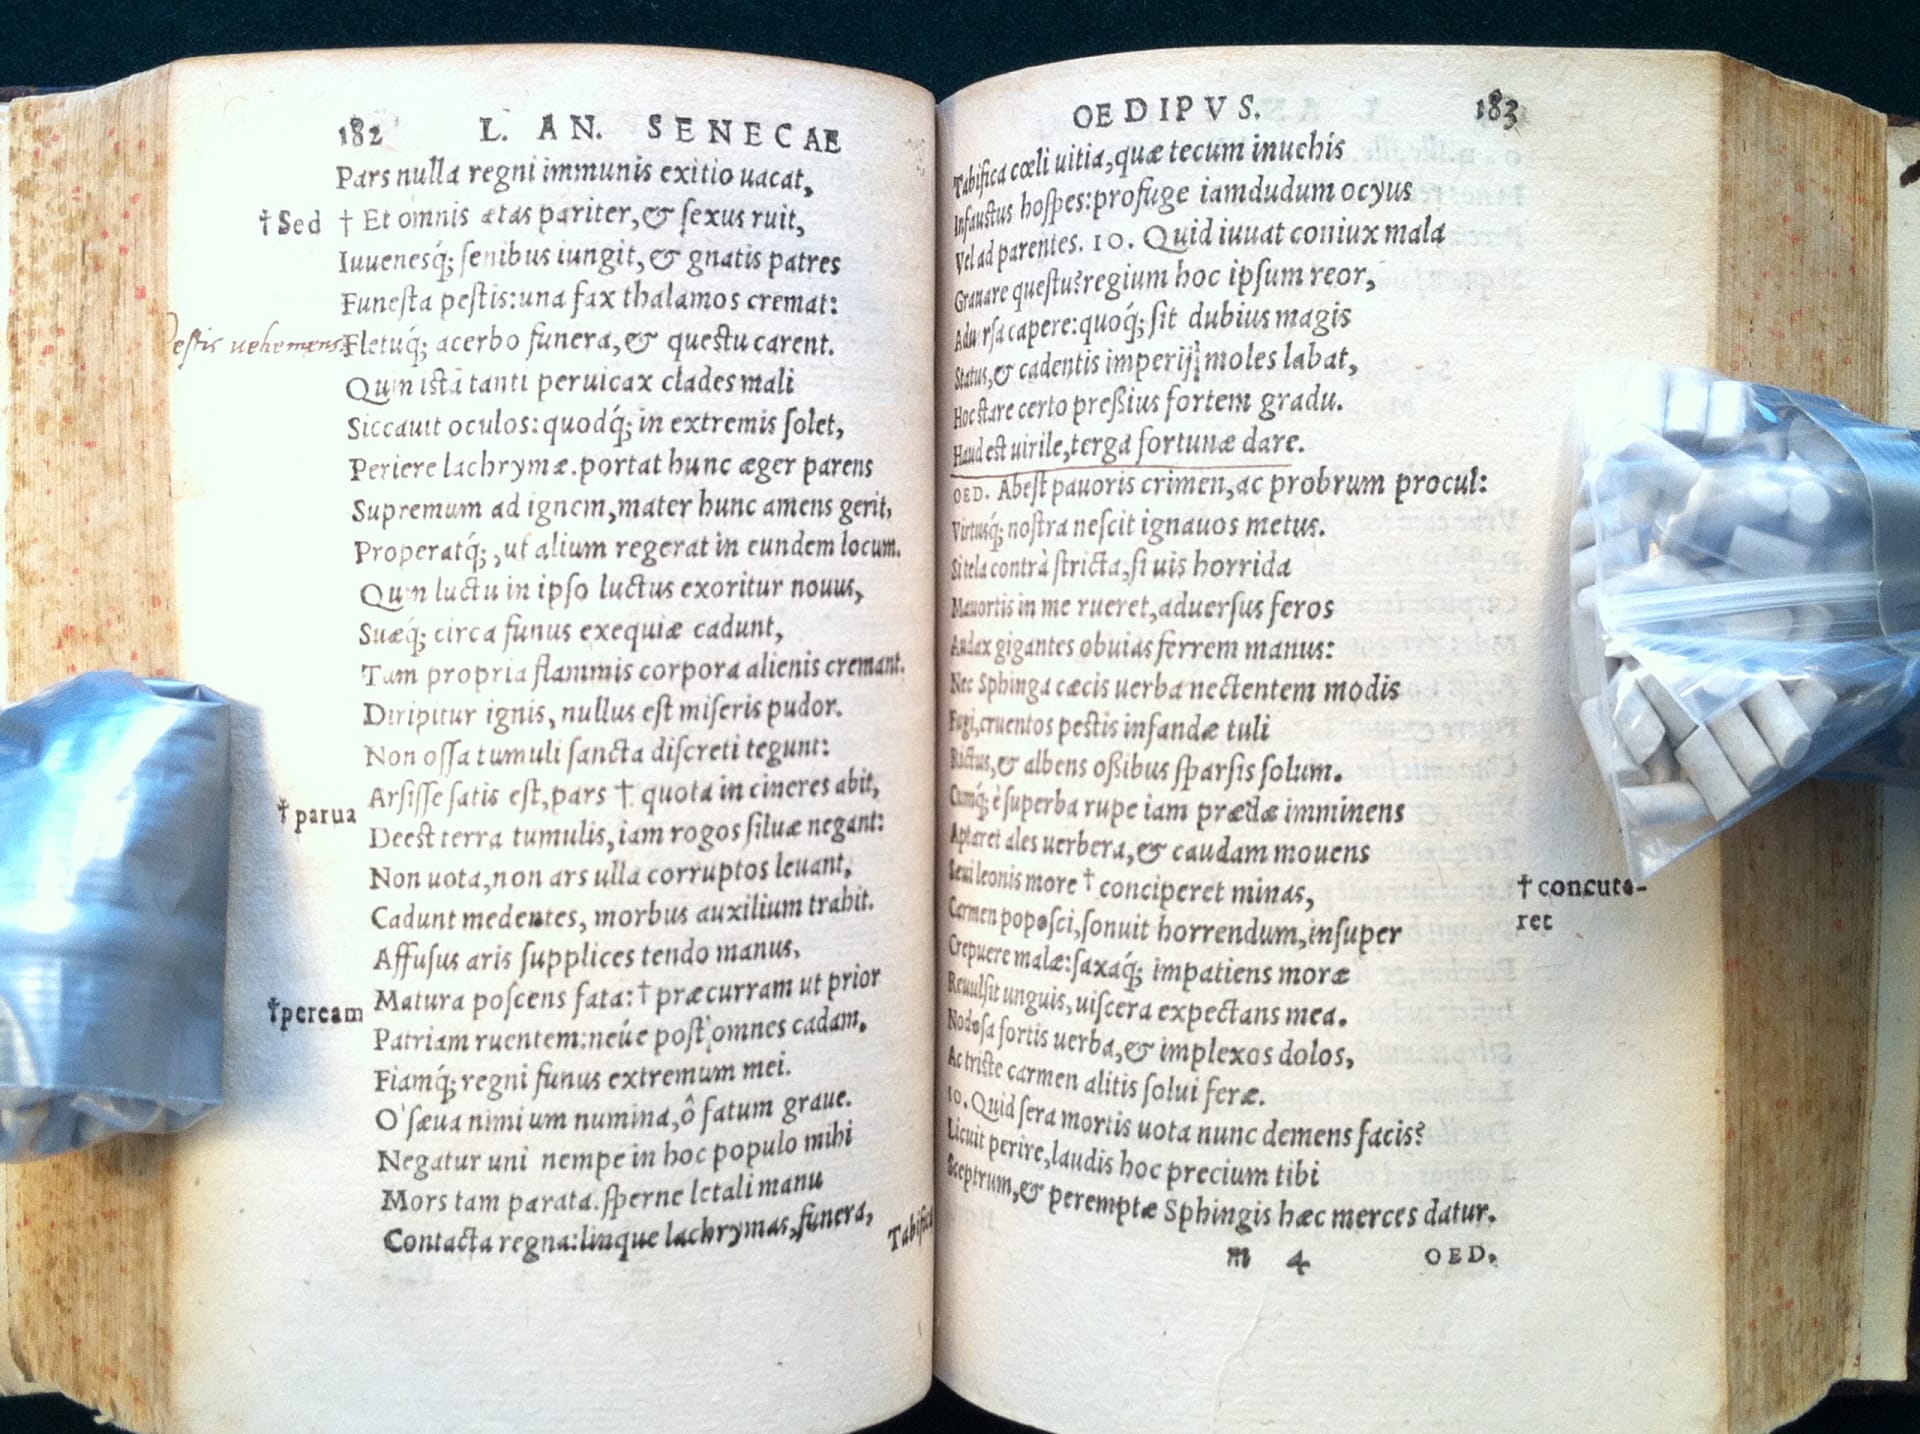 182 L. AN. SENECAE
Pars nulla regni immunis exitio uacat,
†Sed † Et omnis ætas pariter, & ſexus ruit,
Iuuenesq́; ſenibus iungit, & gnatis patres
Funeſta peſtis: una fax thalamos cremat:
Pestis uehemens. Fletuq́; acerbo funera, & queſtu carent.
Quin iſta tanti peruicax clades mali
Siccauit oculos: quodq́; in extremis ſolet,
Periere lachrymæ. portat hunc æger parens
Supremum ad ignem, mater hunc amens gerit,
Properatq́;, ut alium regerat in eundem locum.
Quin luctu in ipſo luctus exoritur nouus,
Suæq́; circa funus exequiæ cadunt,
Tum propria flammis corpora alienis cremant.
Diripitur ignis, nullus eſt miſeris pudor.
Non oſſa tumuli ſancta diſcreti tegunt:
Arſiſſe ſatis eſt, pars † quota in cineres abit,
†parua
Deeſt terra tumulis, iam rogos ſiluæ negant:
Non uota, non ars ulla corruptos leuant,
Cadunt medentes, morbus auxilium trahit.
Affuſus aris ſupplices tendo manus,
Matura poſcens fata: † præcurram ut prior
†peream
Patriam ruentem: neúe poſt omnes cadam,
Fiamq́; regni funus extremum mei.
O ſæua nimium numina, ô fatum graue.
Negatur uni nempe in hoc populo mihi
Mors tam parata. ſperne letali manu
Contacta regna: linque lachrymas, funera,
Tabifica
OEDIPVS. 183
Tabifica cœli uitia, quæ tecum inuehis
Infauſtus hoſpes: profuge iamdudum ocyus
Vel ad parentes. IO. Quid iuuat coniux mala
Grauare queſtu? regium hoc ipſum reor,
Aduerſa capere: quoq́; ſit dubius magis
Status, & cadentis imperij moles labat,
Hoc ſtare certo preßius fortem gradu.
Haud eſt uirile, terga fortunæ dare.
OED. Abeſt pauoris crimen, ac probrum procul:
Virtusq́; noſtra neſcit ignauos metus.
Si tela contrà ſtricta, ſi uis horrida
Mauortis in me rueret, aduerſus feros
Audax gigantes obuias ferrem manus:
Nec Sphinga cæcis uerba nectentem modis
Fugi, cruentos peſtis infandæ tuli
Rictus, & albens oßibus ſparſis ſolum.
Cumq́; è ſuperba rupe iam prædæ imminens
Aptaret ales uerbera, & caudam mouens
Sæui leonis more † conciperet minas,
†concute-
ret
Carmen popoſci, ſonuit horrendum, inſuper
Crepuere malæ: ſaxaq́; impatiens moræ
Reuulſit unguis, uiſcera expectans mea.
Nodoſa fortis uerba, & implexos dolos,
Ac triſte carmen alitis ſolui feræ.
IO. Quid ſera mortis uota nunc demens facis?
Licuit perire, laudis hoc precium tibi
Sceptrum, & peremptæ Sphingis hæc merces datur.
m 4 OED.